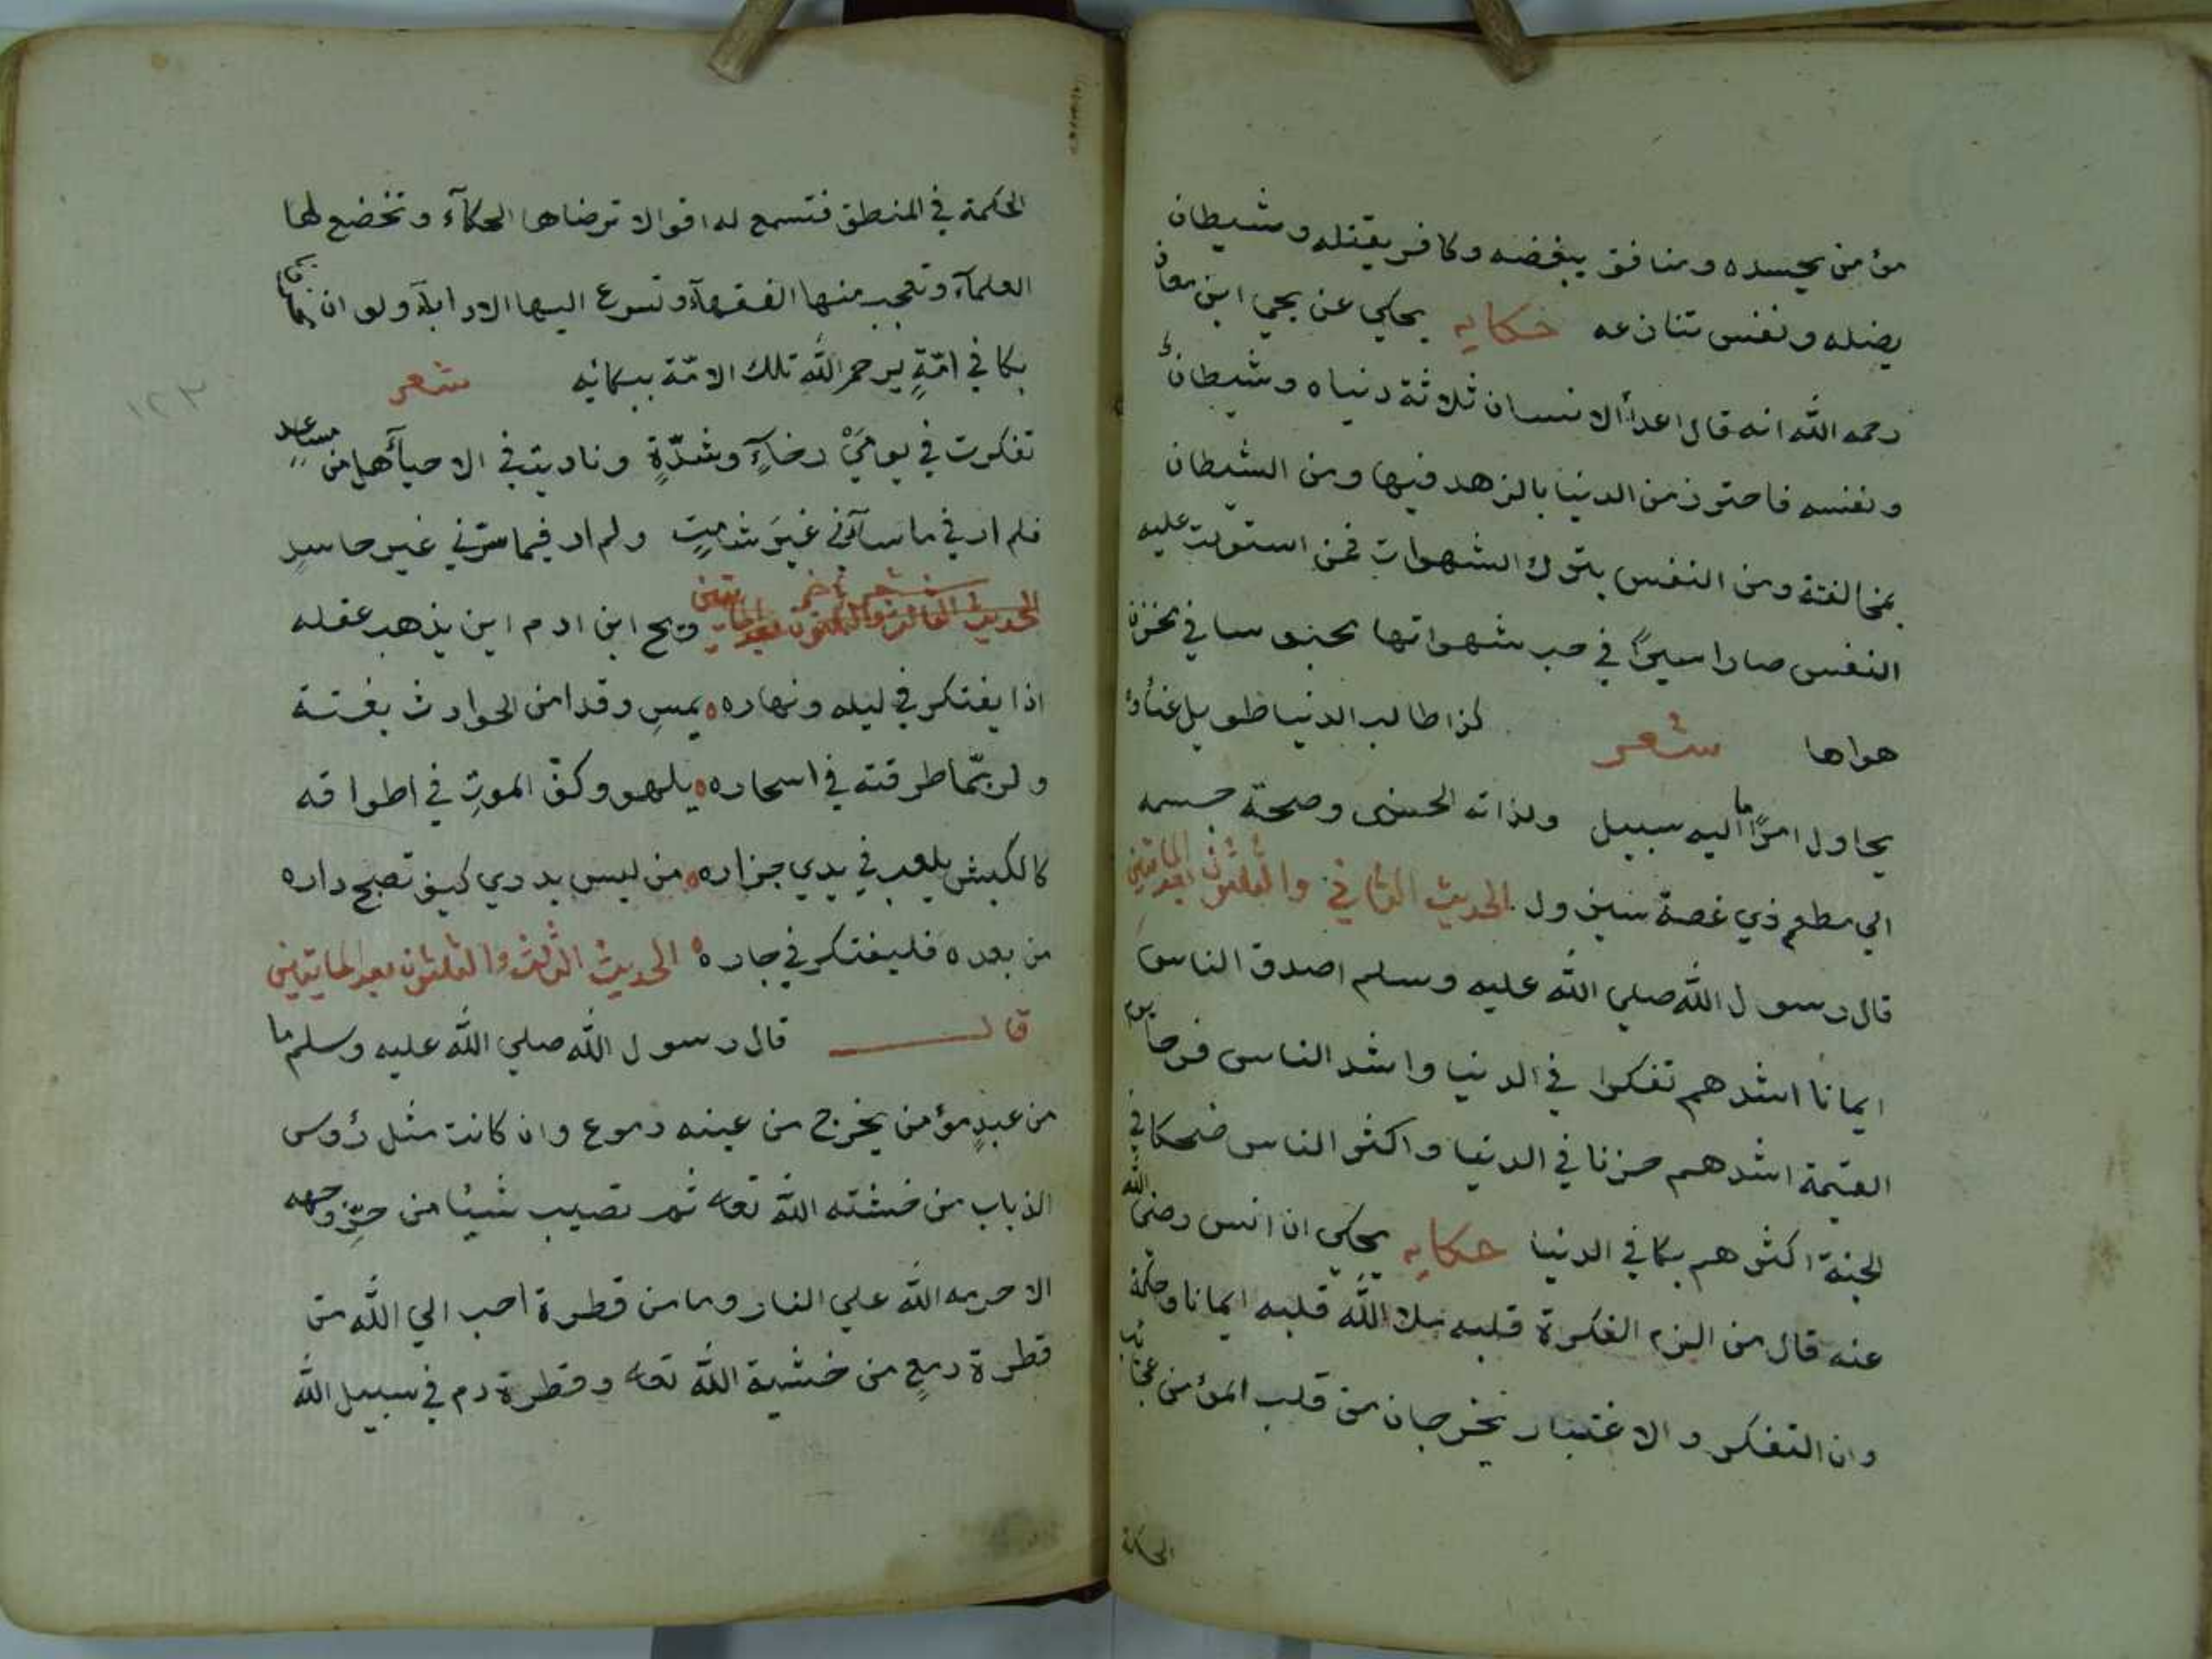 مؤمن يحسده ومنافق يبغضه وكافر يقتله وشيطان
يضله ونفس تنازعه حكايه يحكي عن يحي ابن معاذ
رحمه الله انه قال اعدأ الانسان ثلاثة دنياه وشيطانه
ونفسه فاحترز من الدنيا بالزهد فيها ومن الشيطان
بمخالفته ومن النفس بترك الشهوات فمن استولت عليه
النفس صار اسيرًا في حب شهواتها محبوسا في
هواها شعر طالب الدنيا طويل عناؤه
يحاول امرًا ما اليه سبيل ولذاته الحسنى وصحة جسمه
الي مطعم ذي غصة سيزول الحديث الثاني والثلثون بعد المايتين
قال رسول الله صلي الله عليه وسلم اصدق الناس
ايمانا اشدهم تفكرا في الدنيا واشد الناس فرحا يوم
القيمة اشدهم حزنا في الدنيا واكثر الناس ضحكا في
الجنة اكثرهم بكا في الدنيا حكايه يحكي ان انس رضي الله
عنه قال من الزم الفكرة قلبه ملا الله قلبه ايمانا وحكمة
وان التفكر والاعتبار يخرجان من قلب المؤمن عجائب
الحكمة
الحكمة في المنطق فتسمع له اقوالا ترضاها الحكمآء وتخضع لها
العلمآء وتعجب منها الفقهآء وتسرع اليها الادبآء ولو ان
بكا في امّةٍ يرحم الله تلك الامّة ببكائه شعر
تفكرت في يوميْ رخاءٍ وشدّةٍ وناديت في الاحيآء هل من مساعد
فلم ار في ما سآئني غيرَ شامتٍ ولم ار فيما سرّني غير حاسدٍ
شعر اخر
الحديث الثالث والثلثون بعد المايتين ويح ابن ادم اين يذهب عقله
اذا يفتكر في ليله ونهاره يمسِ وقد امن الحوادث بغتة
ولربّما طرقته في اسحاره يلهو وكفّ الموتِ في اطواقه
كالكبش يلعب في يدي جزاره من ليس يدري كيف تصبح داره
من بعده فليفتكر في جاره الحديث الثالث والثلثون بعد المايتين
قال قال رسول الله صلي الله عليه وسلم ما
من عبدٍ مؤمن يخرج من عينه دموع وان كانت مثل رؤس
الذباب من خشيته الله تعا ثم تصيب شيئا من حرّ وجهه
الا حرمه الله علي النار وما من قطرة احب الي الله من
قطرة دمعٍ من خشية الله تعا وقطرة دم في سبيل الله
١٢٣